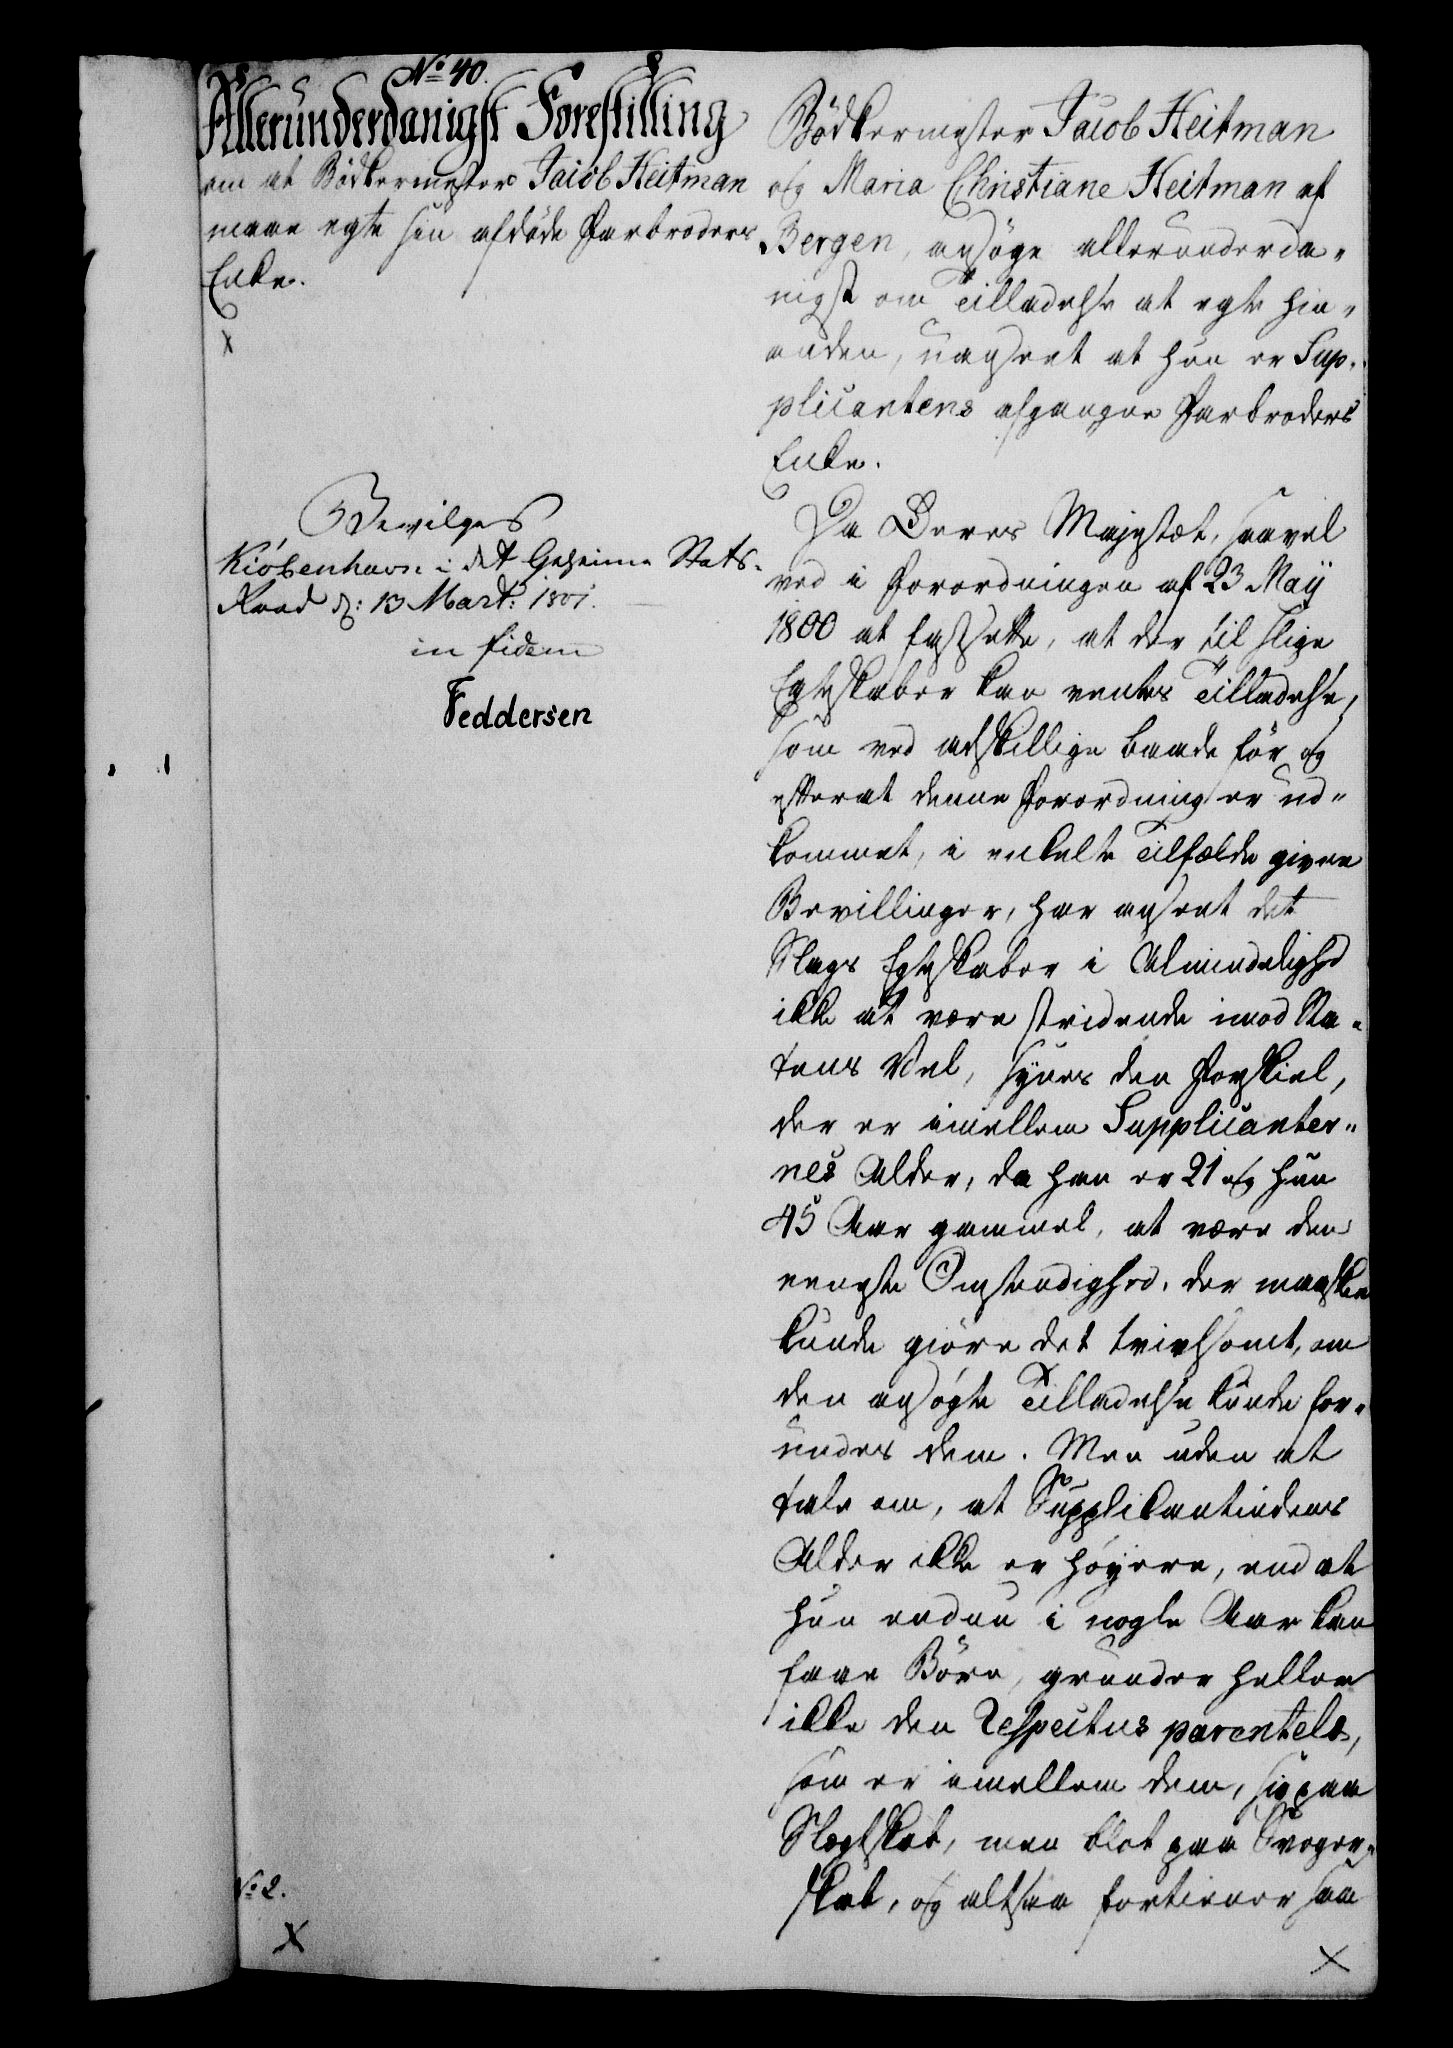 No 40.
Allerunderdanigst Forestilling
om at Bödkermester Jacob Heitman
maae egte sin afdöde Farbroders
Enke.
Bevilges
Kiöbenhavn i det Geheime Stats-
Raad d: 13 Mart: 1801.
in fidem
Feddersen
No 2.
Bödkermester Jacob Heitman
og Maria Christiane Heitman af
Bergen, ansöge allerunderda-
nigst om Tilladelse at egte hin-
anden, uanseet at hun er Sup-
plicantens afgangne Farbroders
Enke.
Da Deres Majestæt, saavel
ved i Forordningen af 23 Maÿ
1800 at fastsette, at der til slige
Egteskaber kan ventes Tilladelse,
som ved adskillige baade för og
efterat denne Forordning er ud-
kommet, i enkelte Tilfælde givne
Bevillinger, har anseet det
Slags Egteskaber i Almindelighed
ikke at være stridende imod Sta-
tens Vel, synes den Forskiel,
der er imellem Supplicanter-
nes Alder, da han er 21 og hun
45 Aar gammel, at være den
eeneste Omstendighed, der maaskee
kunde giöre det tvivlsomt, om
den ansögte Tilladelse kunde for-
undes dem. Men uden at
tale om, at Supplikantindens
Alder ikke er höÿere, end at
hun endnu i nogle Aar kan
faae Börn, grunder heller
ikke den respectus parentelæ,
som er imellem dem, sig paa
Slegtskab, men blot paa Svoger-
skab, og altsaa fortiener saa